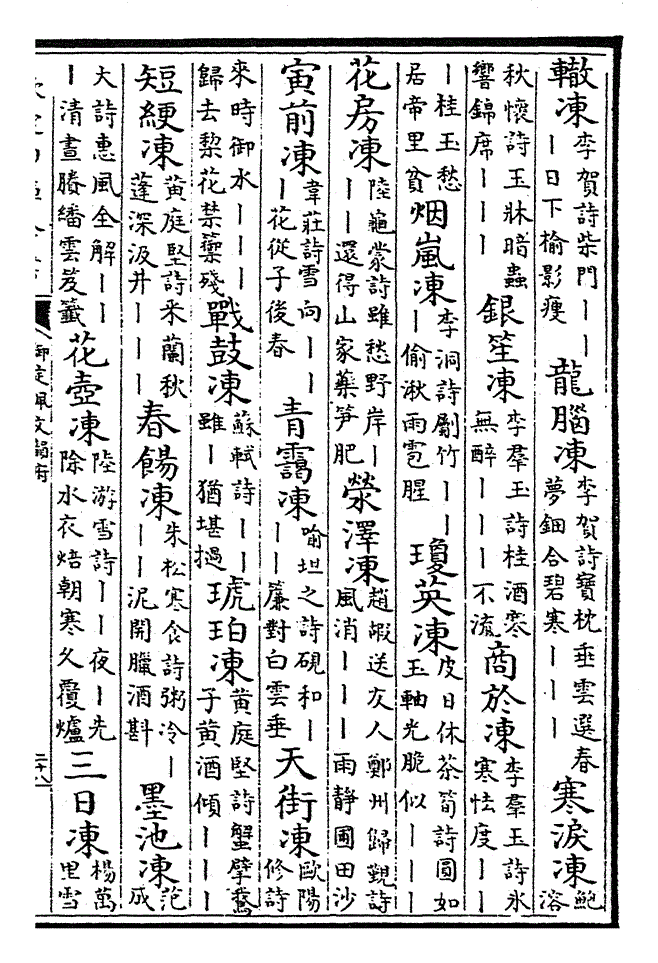 轍凍李賀詩柴門｜｜｜日下榆影瘦龍腦凍李賀詩寶枕垂雲選春夢鈿合碧寒｜｜｜寒淚凍鮑溶
秋懷詩玉牀暗蟲響錦席｜｜｜銀笙凍李羣玉詩桂酒寒無醉｜｜｜不流商於凍李羣玉詩氷寒怯度｜｜
｜桂玉愁居帝里貧烟嵐凍李洞詩劚竹｜｜｜偷湫雨雹腥瓊英凍皮日休茶筍詩圓如玉軸光脆似｜｜｜
花房凍陸龜蒙詩雖愁野岸｜｜｜還得山家藥笋肥滎澤凍趙嘏送友人鄭州歸覲詩風消｜｜｜雨靜圃田沙
寅前凍韋莊詩雪向｜｜｜花從子後春青靄凍喻坦之詩硯和｜｜｜簾對白雲垂天街凍歐陽修詩
來時御水｜｜｜歸去棃花禁籞殘戰鼓凍蘇軾詩｜｜雖｜猶堪撾琥珀凍黃庭堅詩蟹擘鵞子黃酒傾｜｜｜
短綆凍黃庭堅詩采蘭秋蓬深汲井｜｜｜春餳凍朱松寒食詩粥冷｜｜｜泥開臘酒斟墨池凍范成
大詩惠風全解｜｜｜清晝賸繙雲芨籤花壺凍陸游雪詩｜｜夜｜先除水衣焙朝寒久覆爐三日凍楊萬里雪
御定佩文韻府